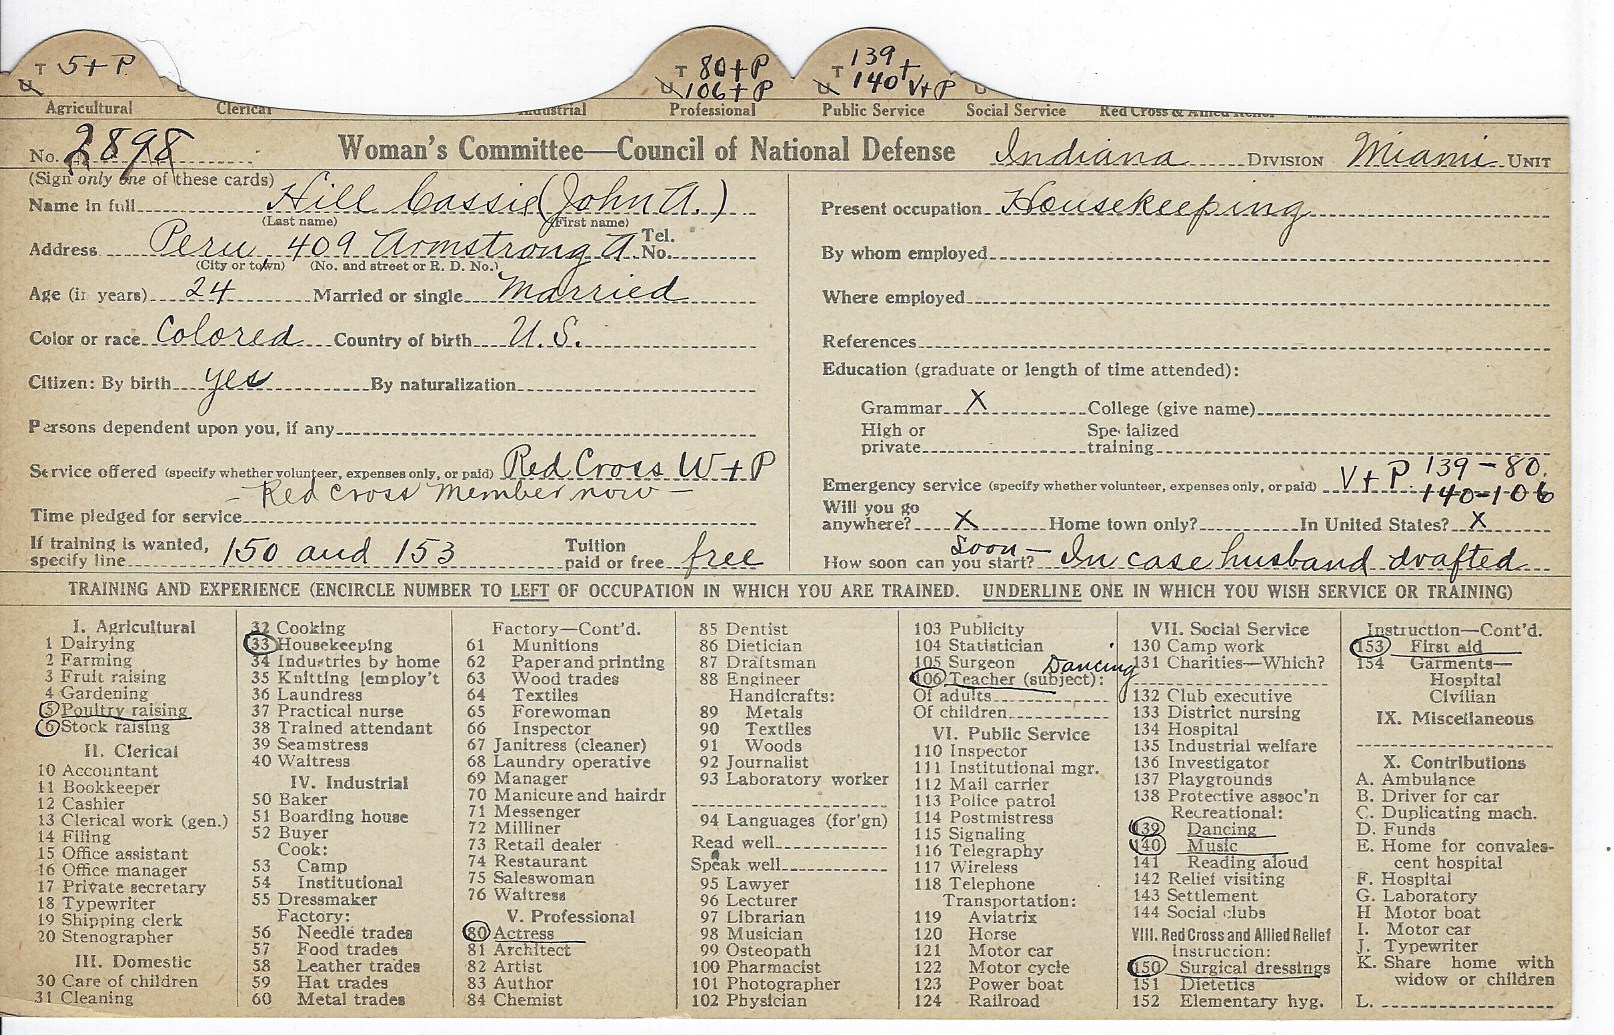 T 5+P.
U
T 80+P
U 106+P
T 139+
U 140 V+P
Agricultural Clerical Industrial Professional Public Service Social Service Red Cross & Allied Relief
No. 2898
Woman's Committee—Council of National Defense Indiana DIVISION Miami UNIT
(Sign only one of these cards)
Name in full Hill Cassie (John A.)
(Last name) (First name)
Address Peru 409 Armstrong A Tel. No.
(City or town) (No. and street or R. D. No.)
Age (in years) 24 Married or single Married
Color or race Colored Country of birth U.S.
Citizen: By birth yes By naturalization
Persons dependent upon you, if any
Service offered (specify whether volunteer, expenses only, or paid) Red Cross W+P
— Red Cross Member now —
Time pledged for service
If training is wanted, specify line 150 and 153 Tuition paid or free free
Present occupation Housekeeping
By whom employed
Where employed
References
Education (graduate or length of time attended):
Grammar X College (give name)
High or private Specialized training
Emergency service (specify whether volunteer, expenses only, or paid) V+P 139-80.
140-106
Will you go anywhere? X Home town only? In United States? X
How soon can you start? Soon— In case husband drafted
TRAINING AND EXPERIENCE (ENCIRCLE NUMBER TO LEFT OF OCCUPATION IN WHICH YOU ARE TRAINED. UNDERLINE ONE IN WHICH YOU WISH SERVICE OR TRAINING)
I. Agricultural
1 Dairying
2 Farming
3 Fruit raising
4 Gardening
5 Poultry raising
6 Stock raising
II. Clerical
10 Accountant
11 Bookkeeper
12 Cashier
13 Clerical work (gen.)
14 Filing
15 Office assistant
16 Office manager
17 Private secretary
18 Typewriter
19 Shipping clerk
20 Stenographer
III. Domestic
30 Care of children
31 Cleaning
32 Cooking
33 Housekeeping
34 Industries by home
35 Knitting [employ't
36 Laundress
37 Practical nurse
38 Trained attendant
39 Seamstress
40 Waitress
IV. Industrial
50 Baker
51 Boarding house
52 Buyer
Cook:
53 Camp
54 Institutional
55 Dressmaker
Factory:
56 Needle trades
57 Food trades
58 Leather trades
59 Hat trades
60 Metal trades
Factory—Cont'd.
61 Munitions
62 Paper and printing
63 Wood trades
64 Textiles
65 Forewoman
66 Inspector
67 Janitress (cleaner)
68 Laundry operative
69 Manager
70 Manicure and hairdr
71 Messenger
72 Milliner
73 Retail dealer
74 Restaurant
75 Saleswoman
76 Waitress
V. Professional
80 Actress
81 Architect
82 Artist
83 Author
84 Chemist
85 Dentist
86 Dietician
87 Draftsman
88 Engineer
Handicrafts:
89 Metals
90 Textiles
91 Woods
92 Journalist
93 Laboratory worker
94 Languages (for'gn)
Read well
Speak well
95 Lawyer
96 Lecturer
97 Librarian
98 Musician
99 Osteopath
100 Pharmacist
101 Photographer
102 Physician
103 Publicity
104 Statistician
105 Surgeon Dancing
106 Teacher (subject):
Of adults
Of children
VI. Public Service
110 Inspector
111 Institutional mgr.
112 Mail carrier
113 Police patrol
114 Postmistress
115 Signaling
116 Telegraphy
117 Wireless
118 Telephone
Transportation:
119 Aviatrix
120 Horse
121 Motor car
122 Motor cycle
123 Power boat
124 Railroad
VII. Social Service
130 Camp work
131 Charities—Which?
132 Club executive
133 District nursing
134 Hospital
135 Industrial welfare
136 Investigator
137 Playgrounds
138 Protective assoc'n
Recreational:
139 Dancing
140 Music
141 Reading aloud
142 Relief visiting
143 Settlement
144 Social clubs
VIII. Red Cross and Allied Relief
Instruction:
150 Surgical dressings
151 Dietetics
152 Elementary hyg.
Instruction—Cont'd.
153 First aid
154 Garments—
Hospital
Civilian
IX. Miscellaneous
X. Contributions
A. Ambulance
B. Driver for car
C. Duplicating mach.
D. Funds
E. Home for convales-
cent hospital
F. Hospital
G. Laboratory
H Motor boat
I. Motor car
J. Typewriter
K. Share home with
widow or children
L.